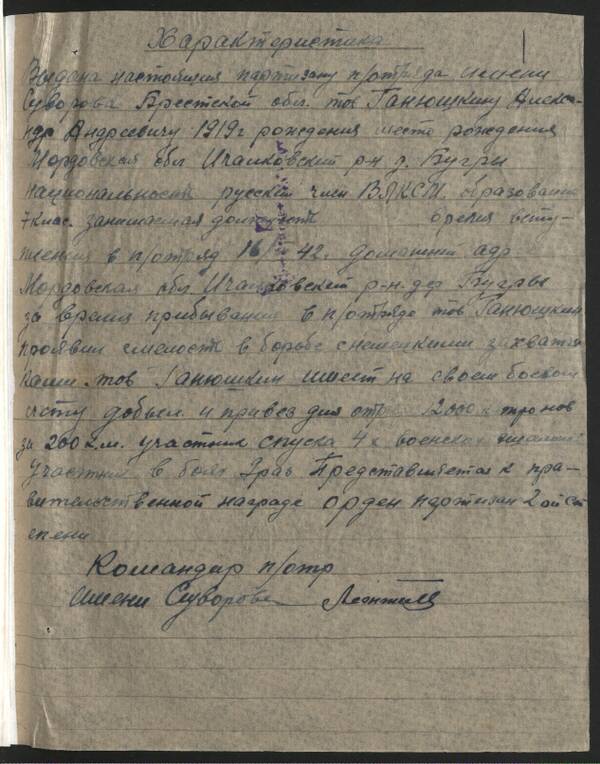 Характеристика
Выдана настоящия партизану п/отряда имени
Суворова Брестской обл. тов Ганюшкину Алекса-
ндр Андреевичу 1919г рождения место рождения
Мордовская обл Ичалковский р-н д. Бугры
национальность русский член ВЛКСМ. образование
7 клас. занимаемая должность время всту-
пления в п/отряд 16 42. домашний адр
Мордовская обл Ичалковский р-н. дер Бугры
за время прибывания в п/отряде тов Ганюшкин
проявил смелость в борьбе с немецкими захватчи
ками. тов Ганюшкин имеет на своем боевом
счету добыл и привез для отр 12000 к тронов
за 200 к.м. участник спуска 4х воинских
Участник в боях 2раз Представляется к пра-
вительственной награде орден партизан 2ой ст
епени
Командир п/отр
имени Суворова